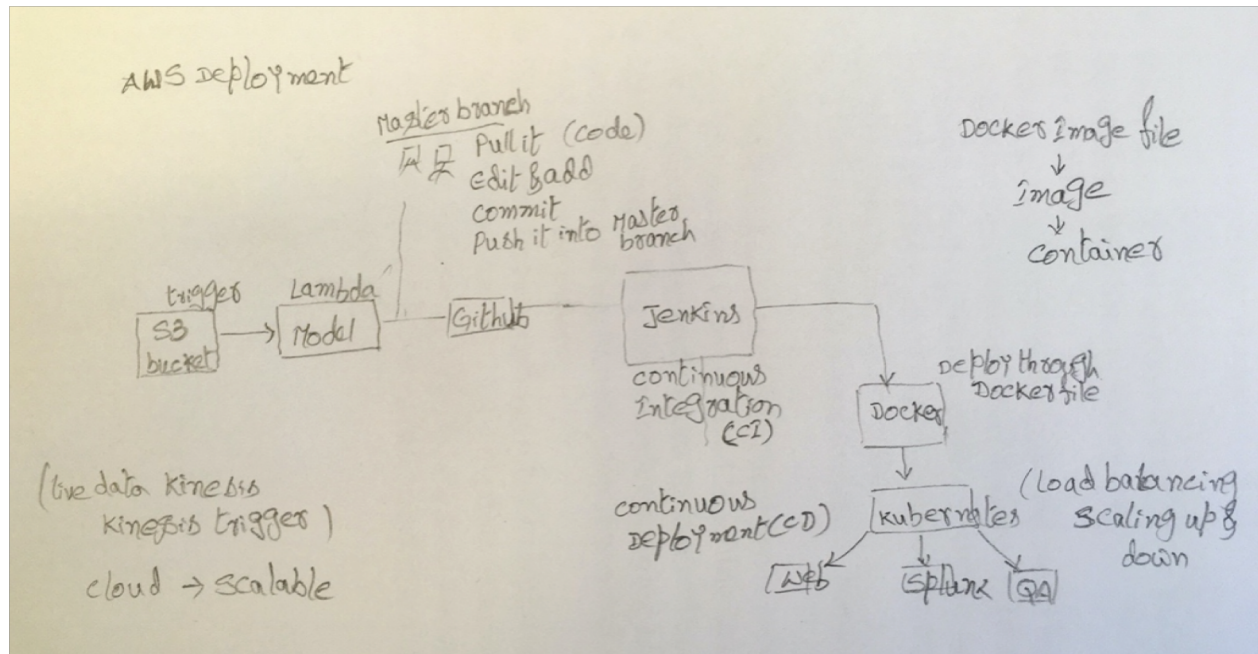 AWS Deployment
Master branch
Pull it (code)
edit & add
commit
Push it into Master
branch
Docker Image file
Image
container
trigger
S3
bucket
Lambda
Model
Github
Jenkins
continuous
Integration
(CI)
Deploy through
Docker file
Docker
(live data kinesis
kinesis trigger)
cloud → scalable
continuous
Deployment (CD)
Kubernates
(Load balancing
scaling up &
down
Web
Splunk
QA